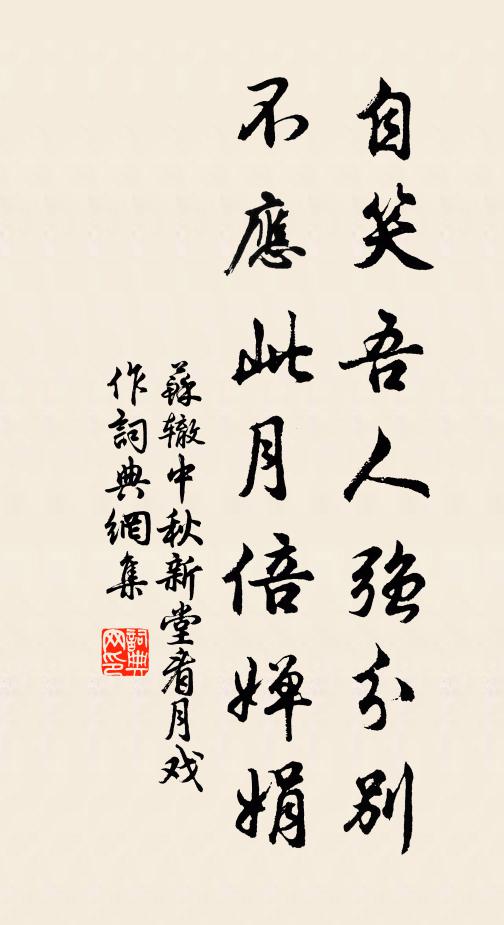 自笑吾人强分别
不應此月倍婵娟
蘇辙中秋新堂看月戏
作詞典網集
詞典
网印